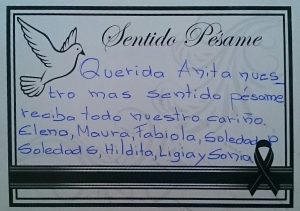 Sentido Pésame
Querida Anita nues
tro mas sentido pésame
reciba todo nuestro cariño.
Elena, Maura, Fabiola, Soledad P
Soledad S, Hildita, Ligia y Sonia